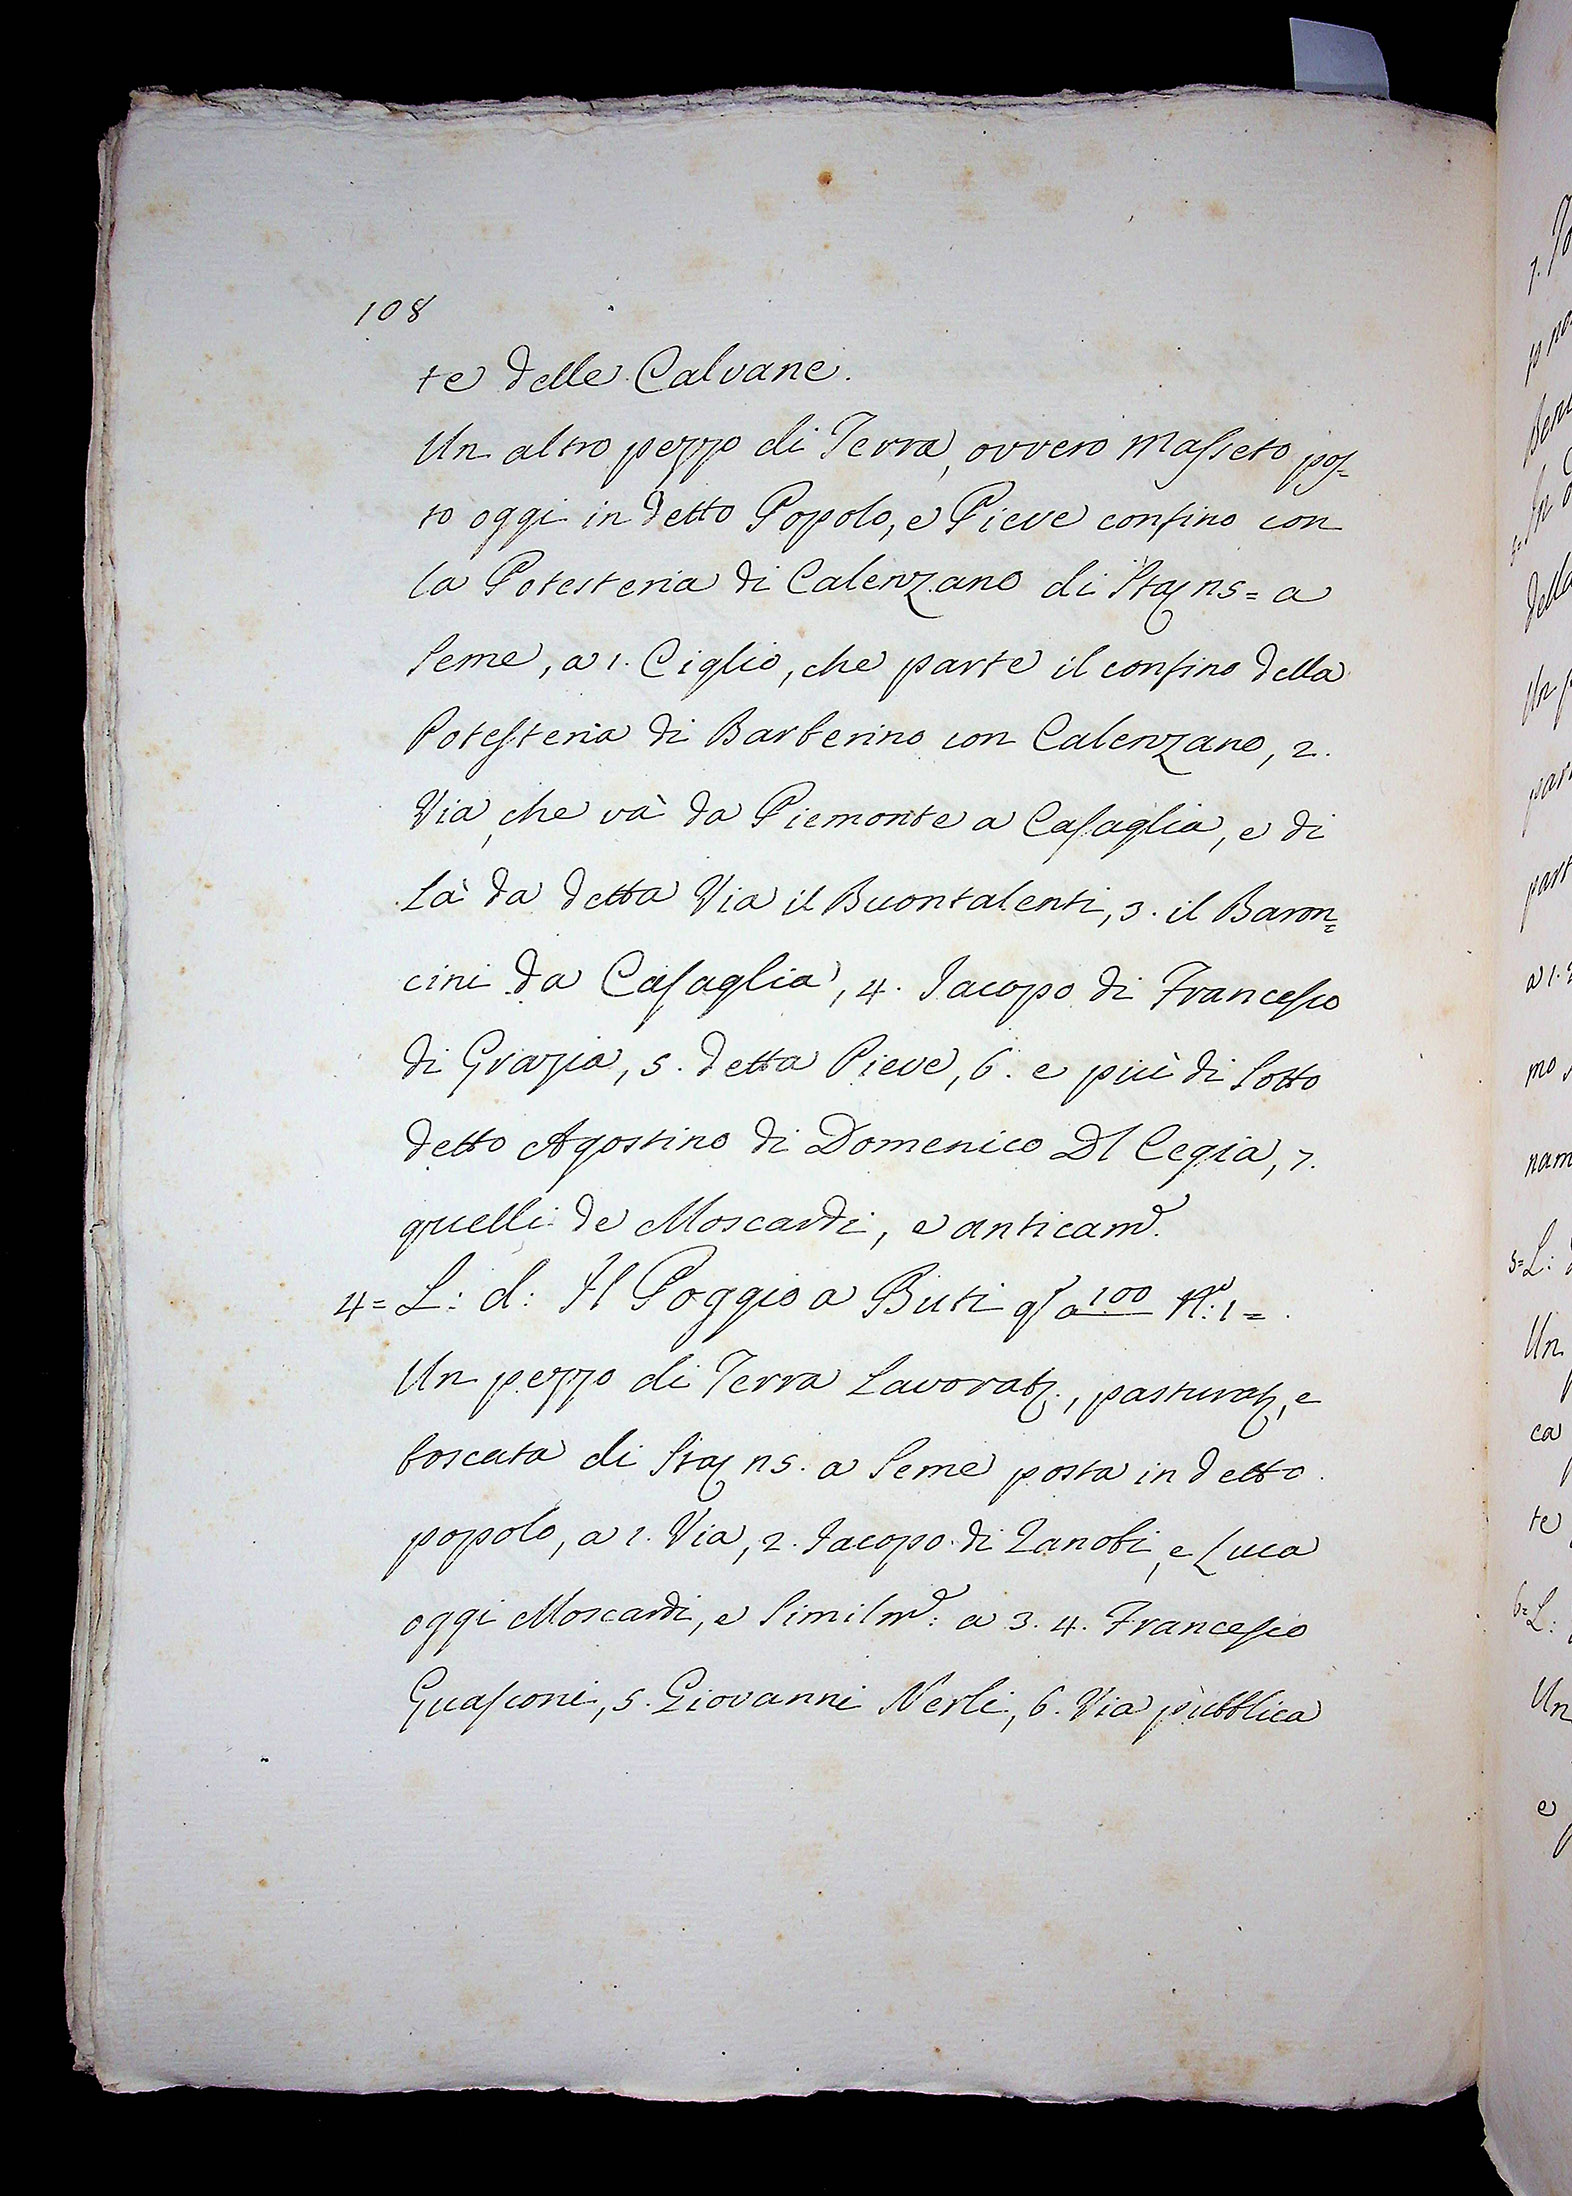 108
te delle Calvane.
Un altro pezzo di Terra, ovvero Masseto pos=
to oggi in detto Popolo, e Pieve confino con
la Potesteria di Calenzano di Staj ns= a
Seme, a 1. Ciglio, che parte il confino della
Potesteria di Barberino con Calenzano, 2.
Via, che và da Piemonte a Casaglia, e di
Là da detta Via il Buontalenti, 3. il Baron=
cini da Casaglia, 4. Jacopo di Francesco
di Grazia, 5. detta Pieve, 6. e più di Sotto
detto Agostino di Domenico Dl Cegia, 7.
quelli de Moscardi, e anticam.e
4= L: d: Il Poggio a Buti a 100 N.o: 1=.
Un pezzo di Terra Lavorat., pasturat, e
boscata di Staj ns. a Seme posta in detto
popolo, a 1. Via, 2. Jacopo di Zanobi, e Luca
oggi Moscardi, e Similm.e: a 3. 4. Francesco
Guasconi, 5. Giovanni Nerli, 6. Via pubblica